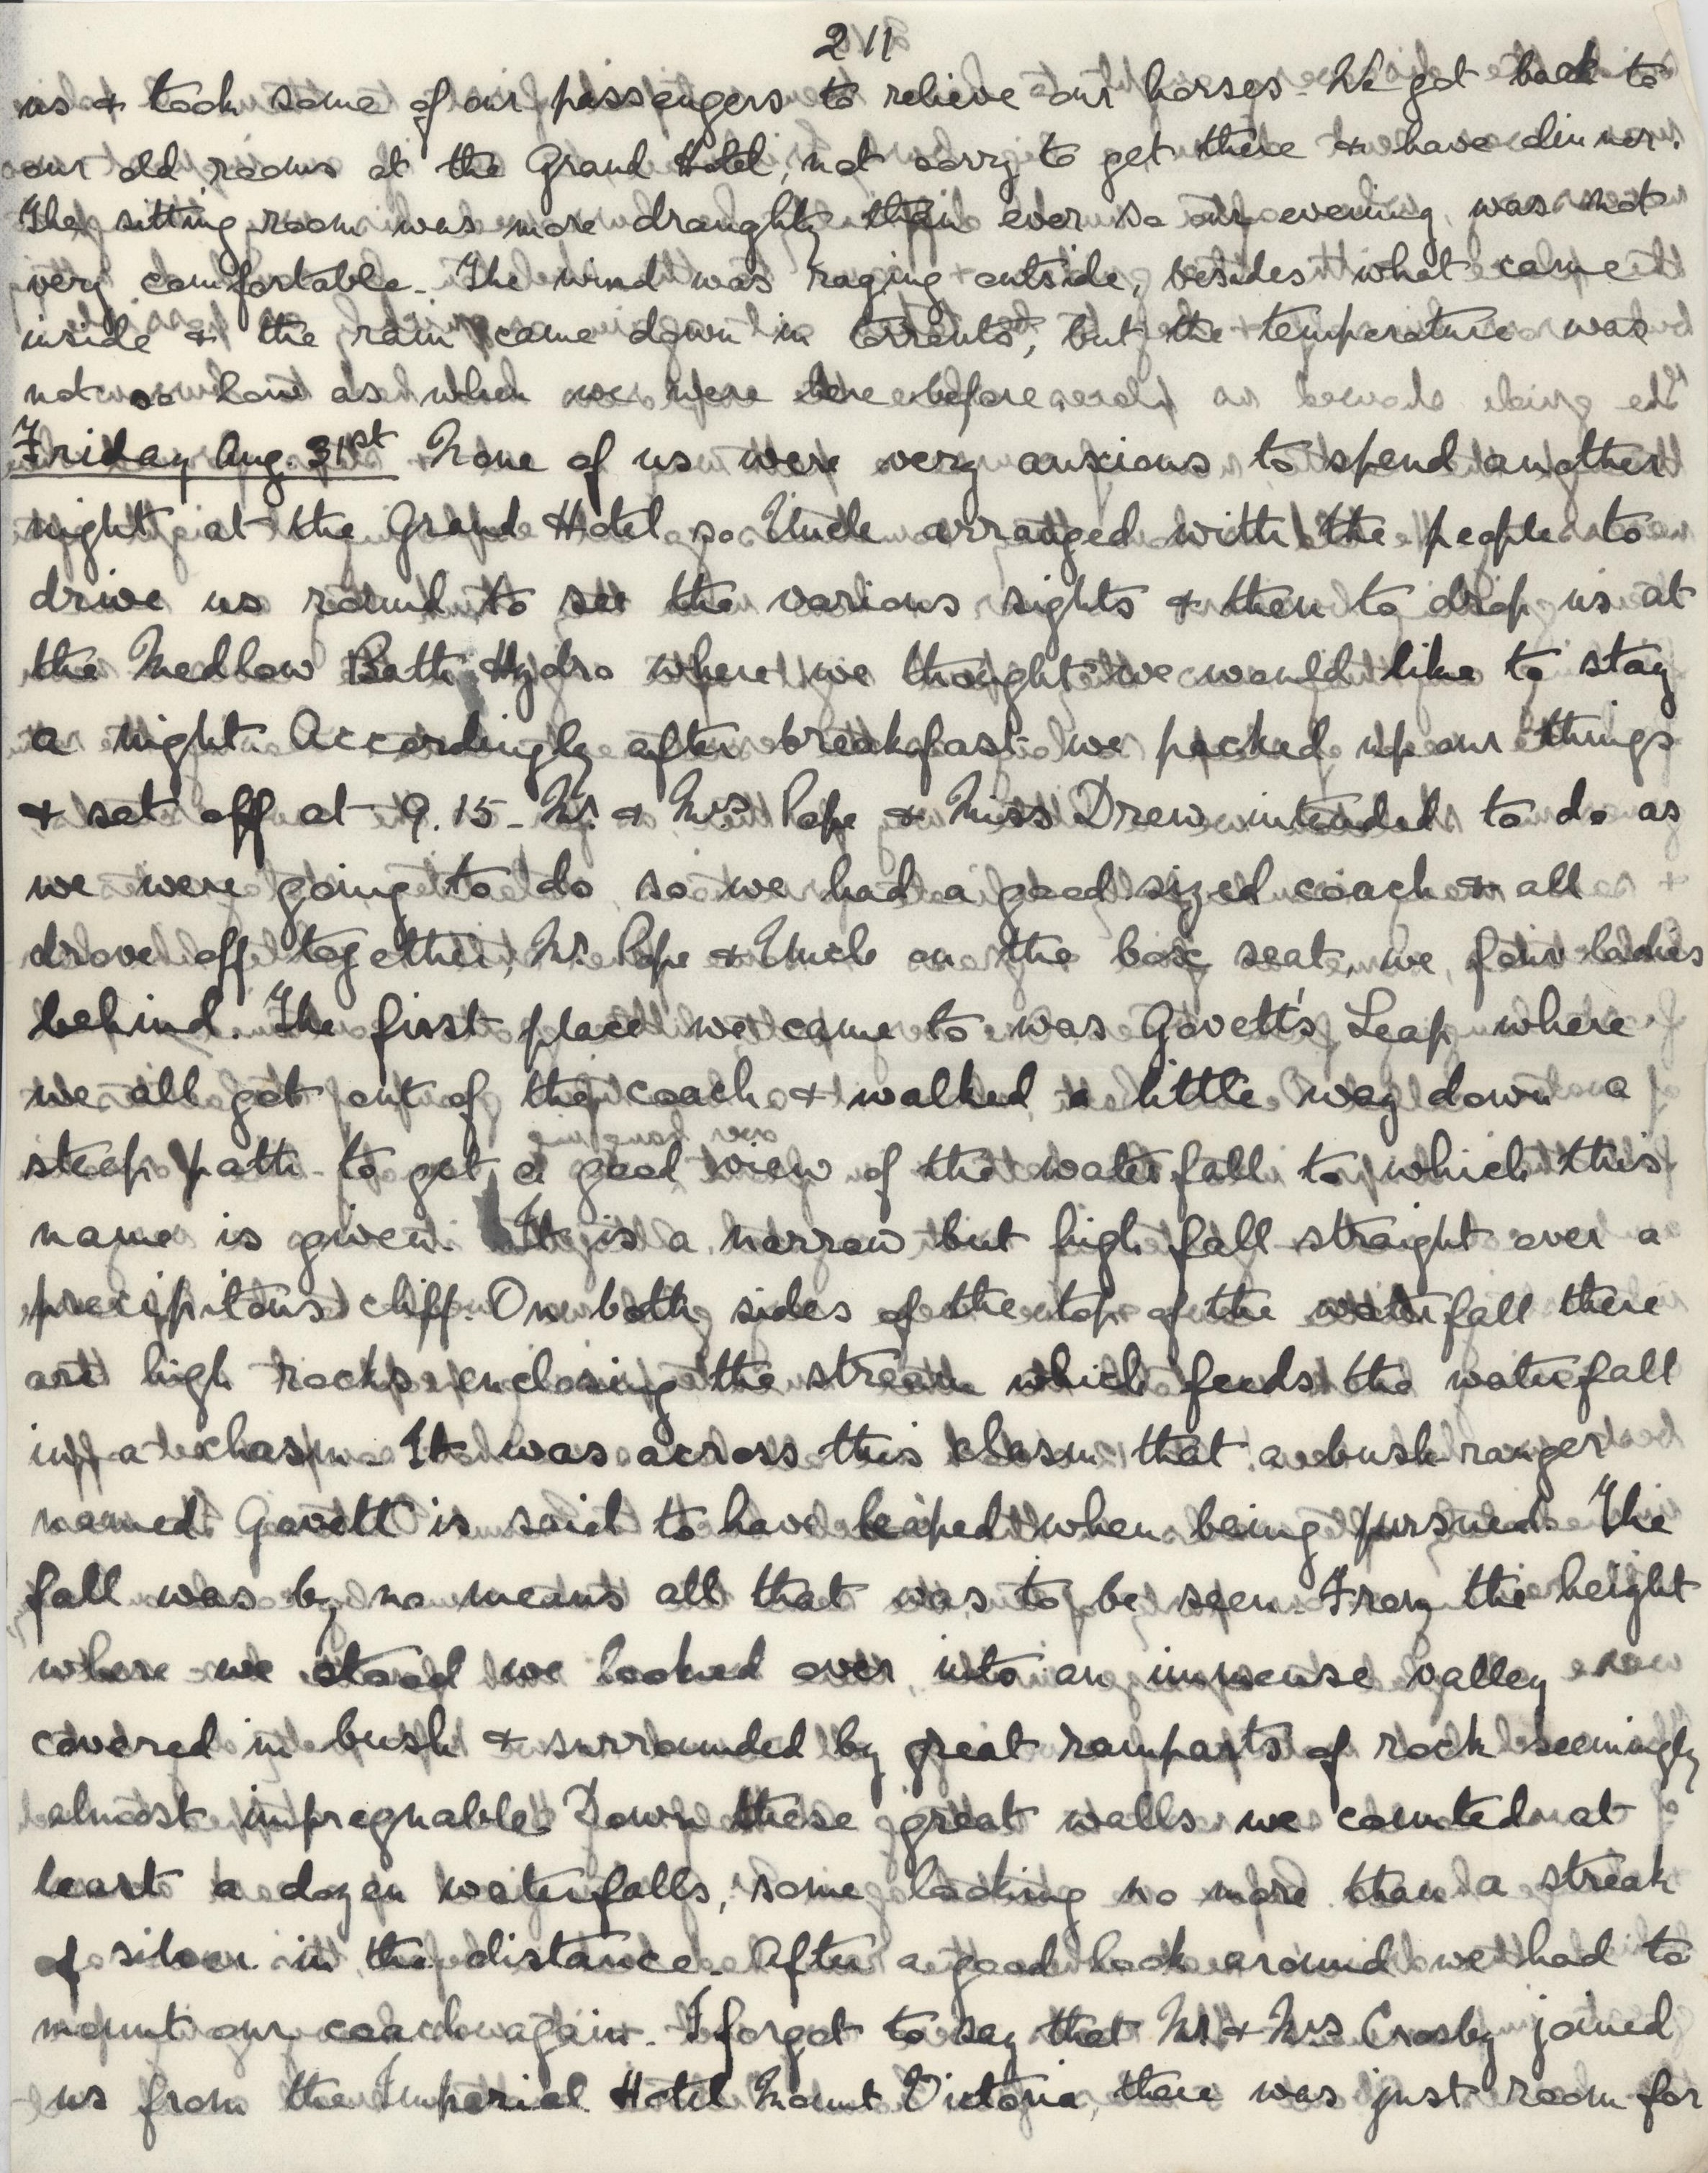 211
us & took some of our passengers to relieve our horses. We got back to
our old rooms at the Grand Hotel, not sorry to get there & have dinner.
The sitting room was more draughty than ever so our evening was not
very comfortable. The wind was raging outside, besides what came
inside & the rain came down in torrents, but the temperature was
not so low as when we were here before
Friday Aug. 31st None of us were very anxious to spend another
night at the Grand Hotel so Uncle arranged with the people to
drive us round to see the various sights & then to drop us at
the Medlow Bath Hydro where we thought we would like to stay
a night. Accordingly after breakfast we packed up our things
& set off at 9.15 - Mr. & Mrs. Pope & Miss Drew intended to do as
we were going to do so we had a good sized coach & all
drove off together, Mr. Pope & Uncle on the box seat, we four ladies
behind. The first place we came to was Govett's Leap where
we all got out of the coach & walked a little way down a
steep path to get a good view of the waterfall to which this
name is given. It is a narrow but high fall straight over a
precipitous cliff. On both sides of the top of the waterfall there
are high rocks enclosing the stream which feeds the waterfall
in a chasm. It was across this chasm that a bush-ranger
named Govett is said to have leaped when being pursued. The
fall was by no means all that was to be seen. From the height
where we stood we looked over into an immense valley
covered in bush & surrounded by great ramparts of rock seemingly
almost impregnable. Down these great walls we counted at
least a dozen waterfalls, some looking no more than a streak
of silver in the distance. After a good look around we had to
mount our coach again. I forgot to say that Mr & Mrs Crosby joined
us from the Imperial Hotel Mount Victoria, there was just room for